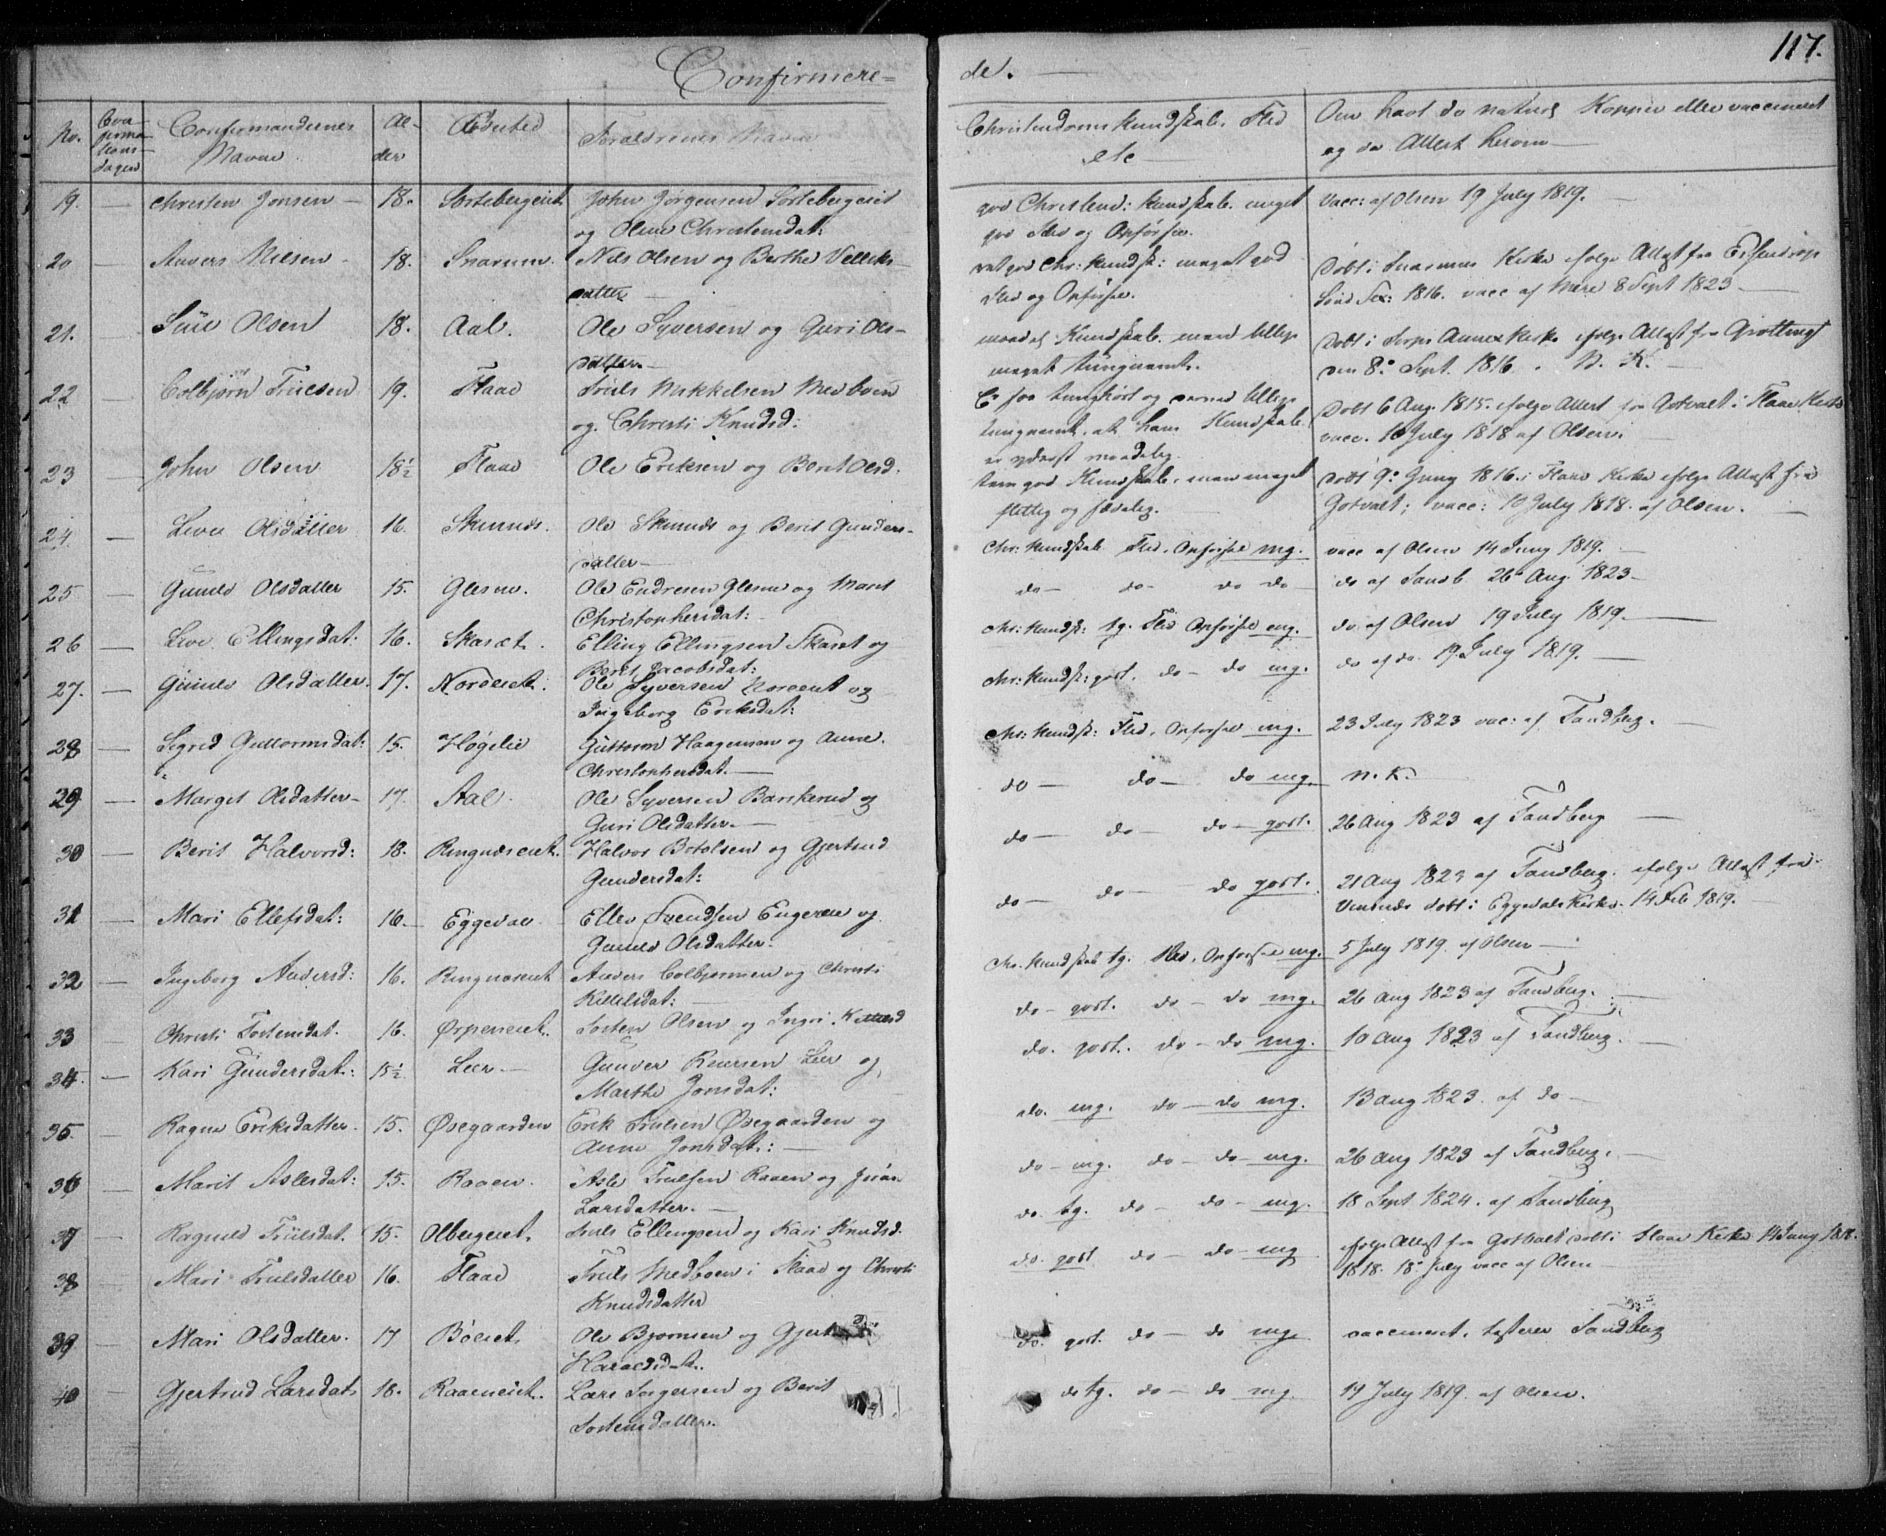 117.
Confirmere=
de.
No. Confirmations-dagen Confirmandernes Navne Alder Opholdsted Forældrenes Navne Christendoms Kundskab, Flid etc Om havt de naturl. Kopper eller vaccineret og da Attest herom
19. — Christen Jonsen — 18. Sortebergeiet John Jørgensen Sortebergeiet
og Olene Christensdat: god Christend: Kundskab. meget god Flid og Opførsel. vacc: af Olsen 19 July 1819.
20 — Anders Nilsen — 18. Snarum. Nils Olsen og Berthe
datter — ret god Chr: Kundsk: meget god Flid og Opførsel. Døbt i Snarums Kirke ifølge Attest fra
1816. vacc af 8 Sept 1823 —
21. — Olsen 18. Aal. Ole Syversen og Guri Ols-
datter — maadel Kundskab. men tillige meget tungnemt. Døbt i Torpe Annex Kirke ifølge Attest fra
den 8de Sept. 1816. N. K. —
22 — Colbjørn Trulsen 19. Flaae Truls Mikkelsen Medboen
og Christi Knudsd: Er saa tunghørt og derved tillige tungnemt, at hans Kundskab er yderst maadelig. Døbt 6 Aug. 1815. ifølge Attest fra Gotvalt i Flaae Kirke
vacc. 10 July 1818 af Olsen.
23 — John Olsen 18½ Flaae Ole Eriksen og Berit Olsd. tem god Kundskab, men meget flittig og sædelig. Døbt 9de Juny 1816. i Flaae Kirke ifølge Attest fra
Gotvalt; vacc: 10 July 1818. af Olsen. —
24. — Live Olsdatter 16. Skinnds. Ole Skinnds og Berit Gunders-
datter — Chr: Kundskab Flid, Opførsel mg. vacc af Olsen 14 Juny 1819. —
25 — Guneld Olsdatter 15. Glesne. Ole Endresen Glesne og Marit
Christophersdat: do — do — do do do af Tandb 26de Aug 1823 —
26 — Live Ellingsdat: 16. Skaret. Elling Ellingsen Skaret og
Berit Jacobsdat: Chr: Kundsk: tg. Flid Opførsel mg. do af Olsen 19 July 1819. —
27. — Guneld Olsdatter. 17. Nordeiet. Ole Syversen Nordeiet og
Ingeborg Eriksdat: Chr: Kundsk: godt. do — do mg. do af do. 19. July 1819. —
28 — Sigrid Guttormsdat: 15. Høgelie Guttorm Haagensen og Anne
Christophersdat. — Chr: Kundsk: Flid, Opførsel mg. 23 July 1823 vac: af Tandberg. —
29 — Marget Olsdatter — 17. Aal. Ole Syversen Barskrud og
Guri Olsdatter. — do — do — do mg. n. K. —
30 — Berit Halvorsd: 18. Ringnæseiet. Halvor Botolsen og Gjertrud
Gundersdat: do — do — do — godt. 26 Aug 1823 af Tandberg —
31 — Mari Ellefsdat: 16. — Eggedal Ellef Svendsen Engerne og
Guneld Olsdatter. do — do — do godt. 21 Aug 1823 af Tandberg. ifølge Attest fra
døbt i Eggedals Kirke. 14 Feb 1819. —
32 — Ingeborg Andersd: 16. Ringnæseiet Anders Colbjørnsen og Christi
Killilsdat: — Chr. Kundskab tg. Flid, Opførsel mg. 5 July 1819 af Olsen —
33 — Christi Tostensdat. 16. Ørpeneiet. Tosten Olsen og Ingri do — godt. do — do mg. 26 Aug 1823 af Tandberg. —
34. — Kari Gundersdat.: 15½ Leer. — Gunder Leer og
Marthe Jonsdat: do. godt. do — do mg. 10 Aug 1823 af Tandberg. —
35. — Ragne Eriksdatter. 15. Øvegaarden Erik Trulsen Øvegaarden og
Anne Jonsdat: — do. mg. do — do mg. 13 Aug 1823 af do —
36 — Marit Aslesdat: 15. Raaen. Asle Trulsen Raaen og
Larsdatter. — do — mg. do — do — mg. 26 Aug 1823 af Tandberg. —
37 — Ragnild Trulsdat. 15. Olbergeiet. Truls Ellingsen og Kari Knudsd. do. tg. do — do — mg. 18 Sept 1824. af Tandberg
38 — Mari Trulsdatter 16. Flaae Truls Medboen i Flaae og Christi
Knudsdatter do. godt do — do — mg ifølge Attest fra Gotvalt døbt i Flaae Kirke 14 Juny 1818.
1818. 18de July vacc af Olsen —
39 — Mari Olsdatter. 17 Bøeiet. Ole Bjørnsen og
Haraldsdat. do. godt. do — do mg. vaccineret, testerer Tandberg
40 — Gjertrud Larsdat. 18. Raaeneiet. Lars Torgersen og Berit
Tostensdatter. do tg. do — do mg. 19 July 1819 af Olsen.